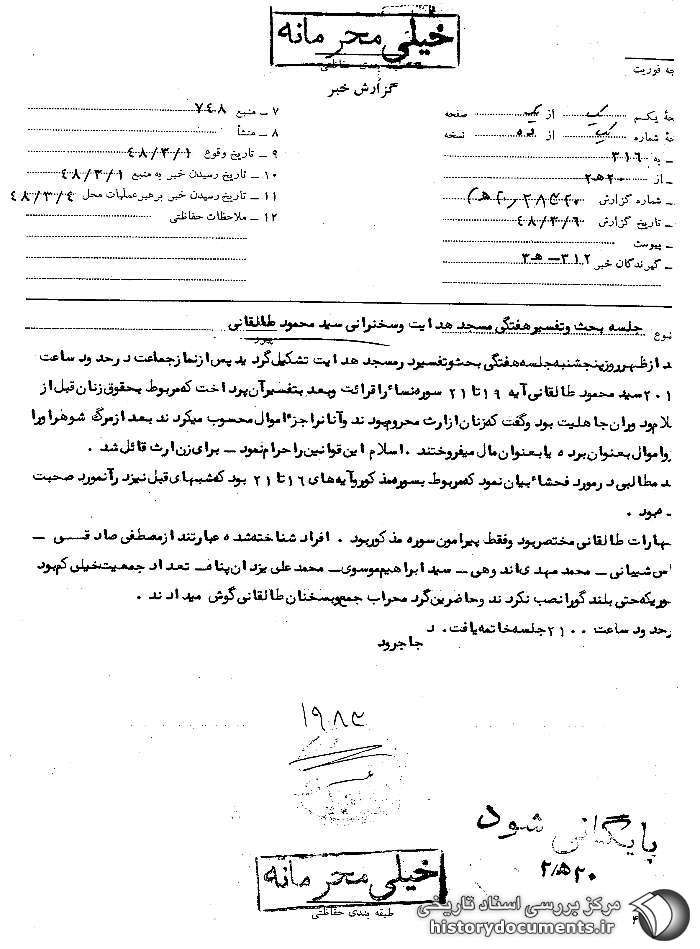 خیلی محرمانه
طبقه بندی حفاظتی
گزارش خبر
جه فوریت
حهٔ یکم یک از یک صفحه
حهٔ شماره یک از ۵۵ نسخه
ـ به ۳۱۶
ـ از ۲۰هـ۲
ـ شماره گزارش
ـ تاریخ گزارش ۴۸/۳/۶
ـ پیوست
ـ گیرندگان خبر ۳۱۲ـهـ۳
۷ ـ منبع ۷۴۸
۸ ـ منشأ
۹ ـ تاریخ وقوع ۴۸/۳/۱
۱۰ ـ تاریخ رسیدن خبر به منبع ۴۸/۳/۱
۱۱ ـ تاریخ رسیدن خبر برهبر عملیات محل ۴۸/۳/۴
۱۲ ـ ملاحظات حفاظتی
نوع جلسه بحث و تفسیر هفتگی مسجد هدایت و سخنرانی سید محمود طالقانی
د از ظهر روز پنجشنبه جلسه هفتگی بحث و تفسیر در مسجد هدایت تشکیل گردید پس از نماز جماعت در حدود ساعت
۲۰۱ سید محمود طالقانی آیه ۱۹ تا ۲۱ سوره نساء را قرائت و بعد بتفسیر آن پرداخت که مربوط بحقوق زنان قبل از
لام و دوران جاهلیت بود و گفت که زنان از ارث محروم بودند و آنانرا جزء اموال محسوب میکردند بعد از مرگ شوهر او را
و اموال بعنوان برده یا بعنوان مال میفروختند . اسلام این قوانین را حرام نمود ـ برای زن ارث قائل شد .
د مطالبی در مورد فحشاء بیان نمود که مربوط بسوره مذکور و آیه های ۱۶ تا ۲۱ بود که شبهای قبل نیز در آنمورد صحبت
بود .
ظهارات طالقانی مختصر بود و فقط پیرامون سوره مذکور بود . افراد شناخته شده عبارتند از مصطفی صادقی ـ
اس شیبانی ـ محمد مهدی اندوهی ـ سید ابراهیم موسوی ـ محمد علی یزدان پناه ـ تعداد جمعیت خیلی کم بود
وریکه حتی بلند گو را نصب نکردند و حاضرین گرد محراب جمع و بسخنان طالقانی گوش میدادند .
رحدود ساعت ۲۱۰۰ جلسه خاتمه یافت . د
جاجرود
پایگانی شود
۲۰هـ۲
خیلی محرمانه
طبقه بندی حفاظتی
مرکز بررسی اسناد تاریخی
historydocuments.ir